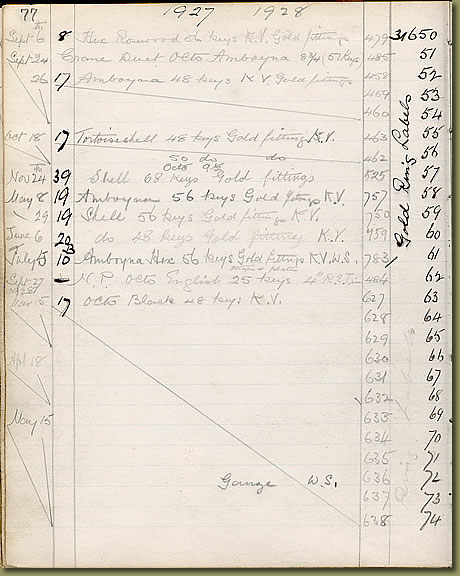 77 1927 1928
Sept 6 8 Hex Rosewood 56 keys K.V. Gold fittings 479 31650
Sept 24 Crane Duet Octo Amboyna 8¾ (51 Keys 485 51
26 17 Amboyna 48 keys K.V. Gold fittings 458 52
459 53
460 54
Oct 18 17 Tortoiseshell 48 keys Gold fittings K.V. 463 55
50 do do 462 56
Octo
Nov 24 39 Shell 68 keys Gold fittings 525 57
May 8 19 Amboyna 56 keys Gold fittings K.V. 757 58
29 19 Shell 56 keys Gold fittings K.V. 750 59
June 6 20 do 48 keys Gold fittings K.V. 759 60
July 10 Amboyna Hex 56 keys Gold fittings K.V. W.S. 783 61
Sept 27 N.P. Octo English 25 keys 484 62
1928
Mar 15 17 Octo Black 48 keys K.V. 627 63
628 64
629 65
Apl 18 630 66
631 67
632 68
May 15 633 69
634 70
635 71
Gauze W.S. 636 72
637 73
638 74
Gold Ring Labels